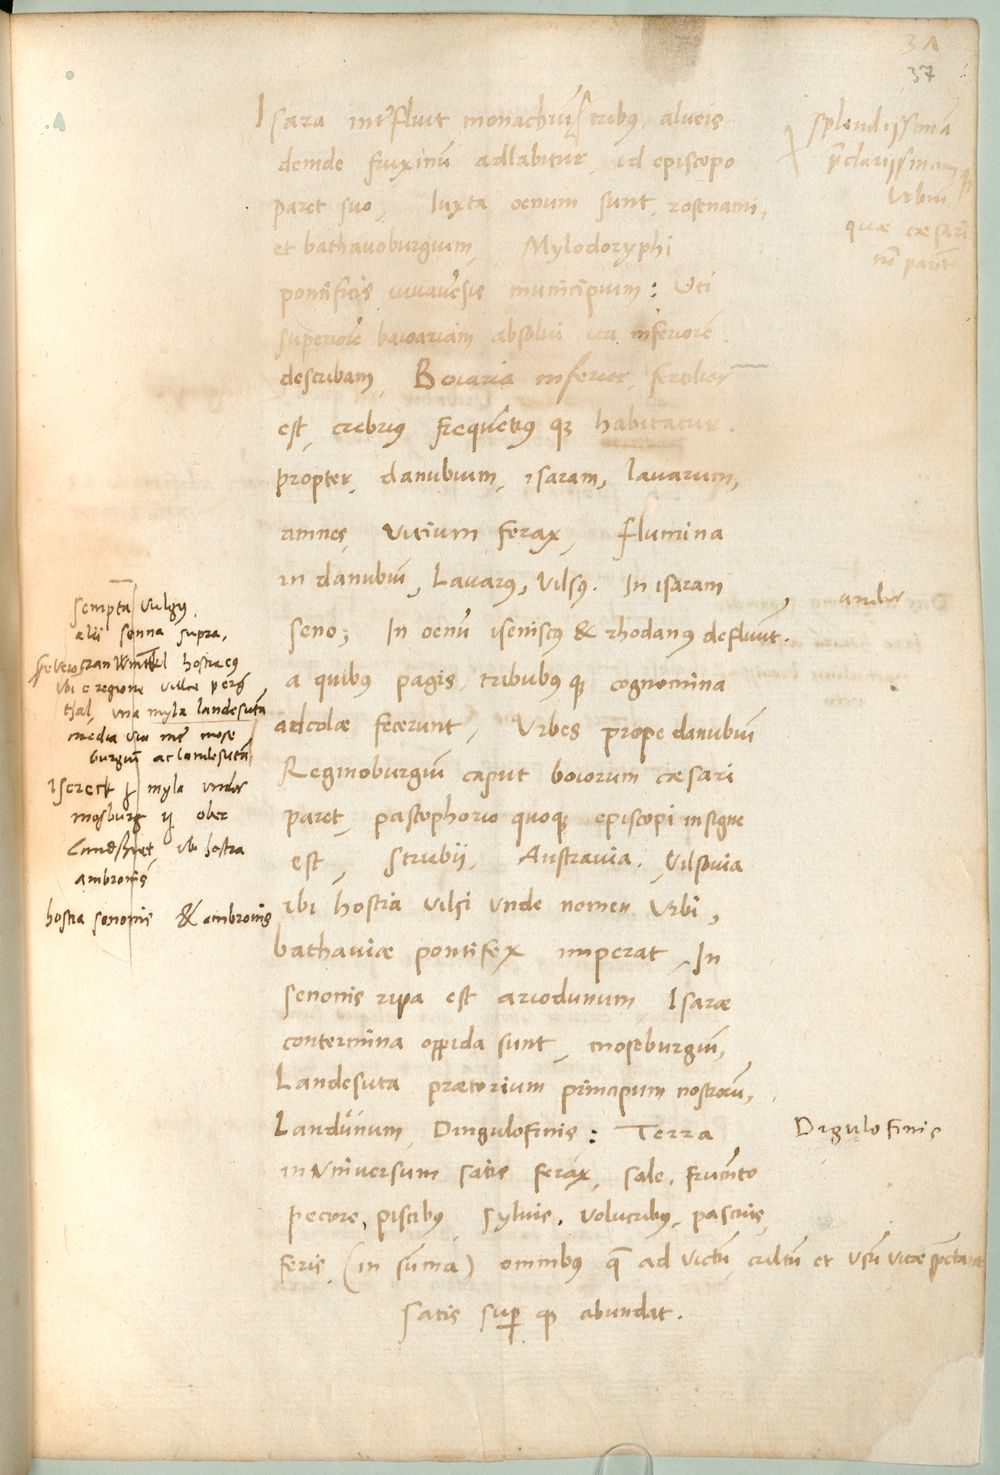 37
Isara interfluit monachiũ tribus alueis
deinde fruxinũ adlabitur, id episcopo
paret suo, Iuxta oenum sunt rosenami,
et bathauoburgium, Mylodoryphi
pontificis iuuauẽsis municipium: Uti
superiorẽ baioariam absolui ita inferiorẽ
describam, Boiaria inferior, fertilior
est, crebrius frequẽtius q3 habitatur.
propter, danubium, isaram, lauarum,
amnes, Vitium ferax, flumina
in danubiũ, Lauarus, Vilsus. In isaram
seno; In oenũ iseniscus & rhodanus defluũt.
a quibus pagis, tribubus q3 cognomina
adcolæ fecerunt, Vrbes prope danubiũ
Reginoburgiũ caput boiorum cæsari
paret, pastophorio quoq3 episcopi insigne
est, Strubij, Austrauia, Vilsouia
ibi hostia vilsi vnde nomen Vrbi,
bathauiæ pontifex imperat, In
senonis ripa est ariodunum, Isaræ
contermina oppida sunt, moseburgiũ,
Landesuta prætorium principum nostrorũ,
Landũnum, Dingulofinis: Terra
in Vniuersum satis ferax, sale, frumẽto
pecore, piscibus, syluis, volucribus, pascuis,
feris, (in sũma) omnibus q̃ ad victũ, cultũ et Vsũ vitæ
satis sup q3 abundat.
splendissimã
p̃clarissimam q3
Vrbiũ
quæ cæsari
nõ paret
Dĩgulofinis
sempta vulgus,
alii senna supra,
hostia eus
vbi e regione
vna myla landesuta
media via int̃ mose
burgiũ ac landesutã
myla vnder
mosburg ij ober
Landshuet, ibi hostia
ambronis
hostia senonis & ambronis